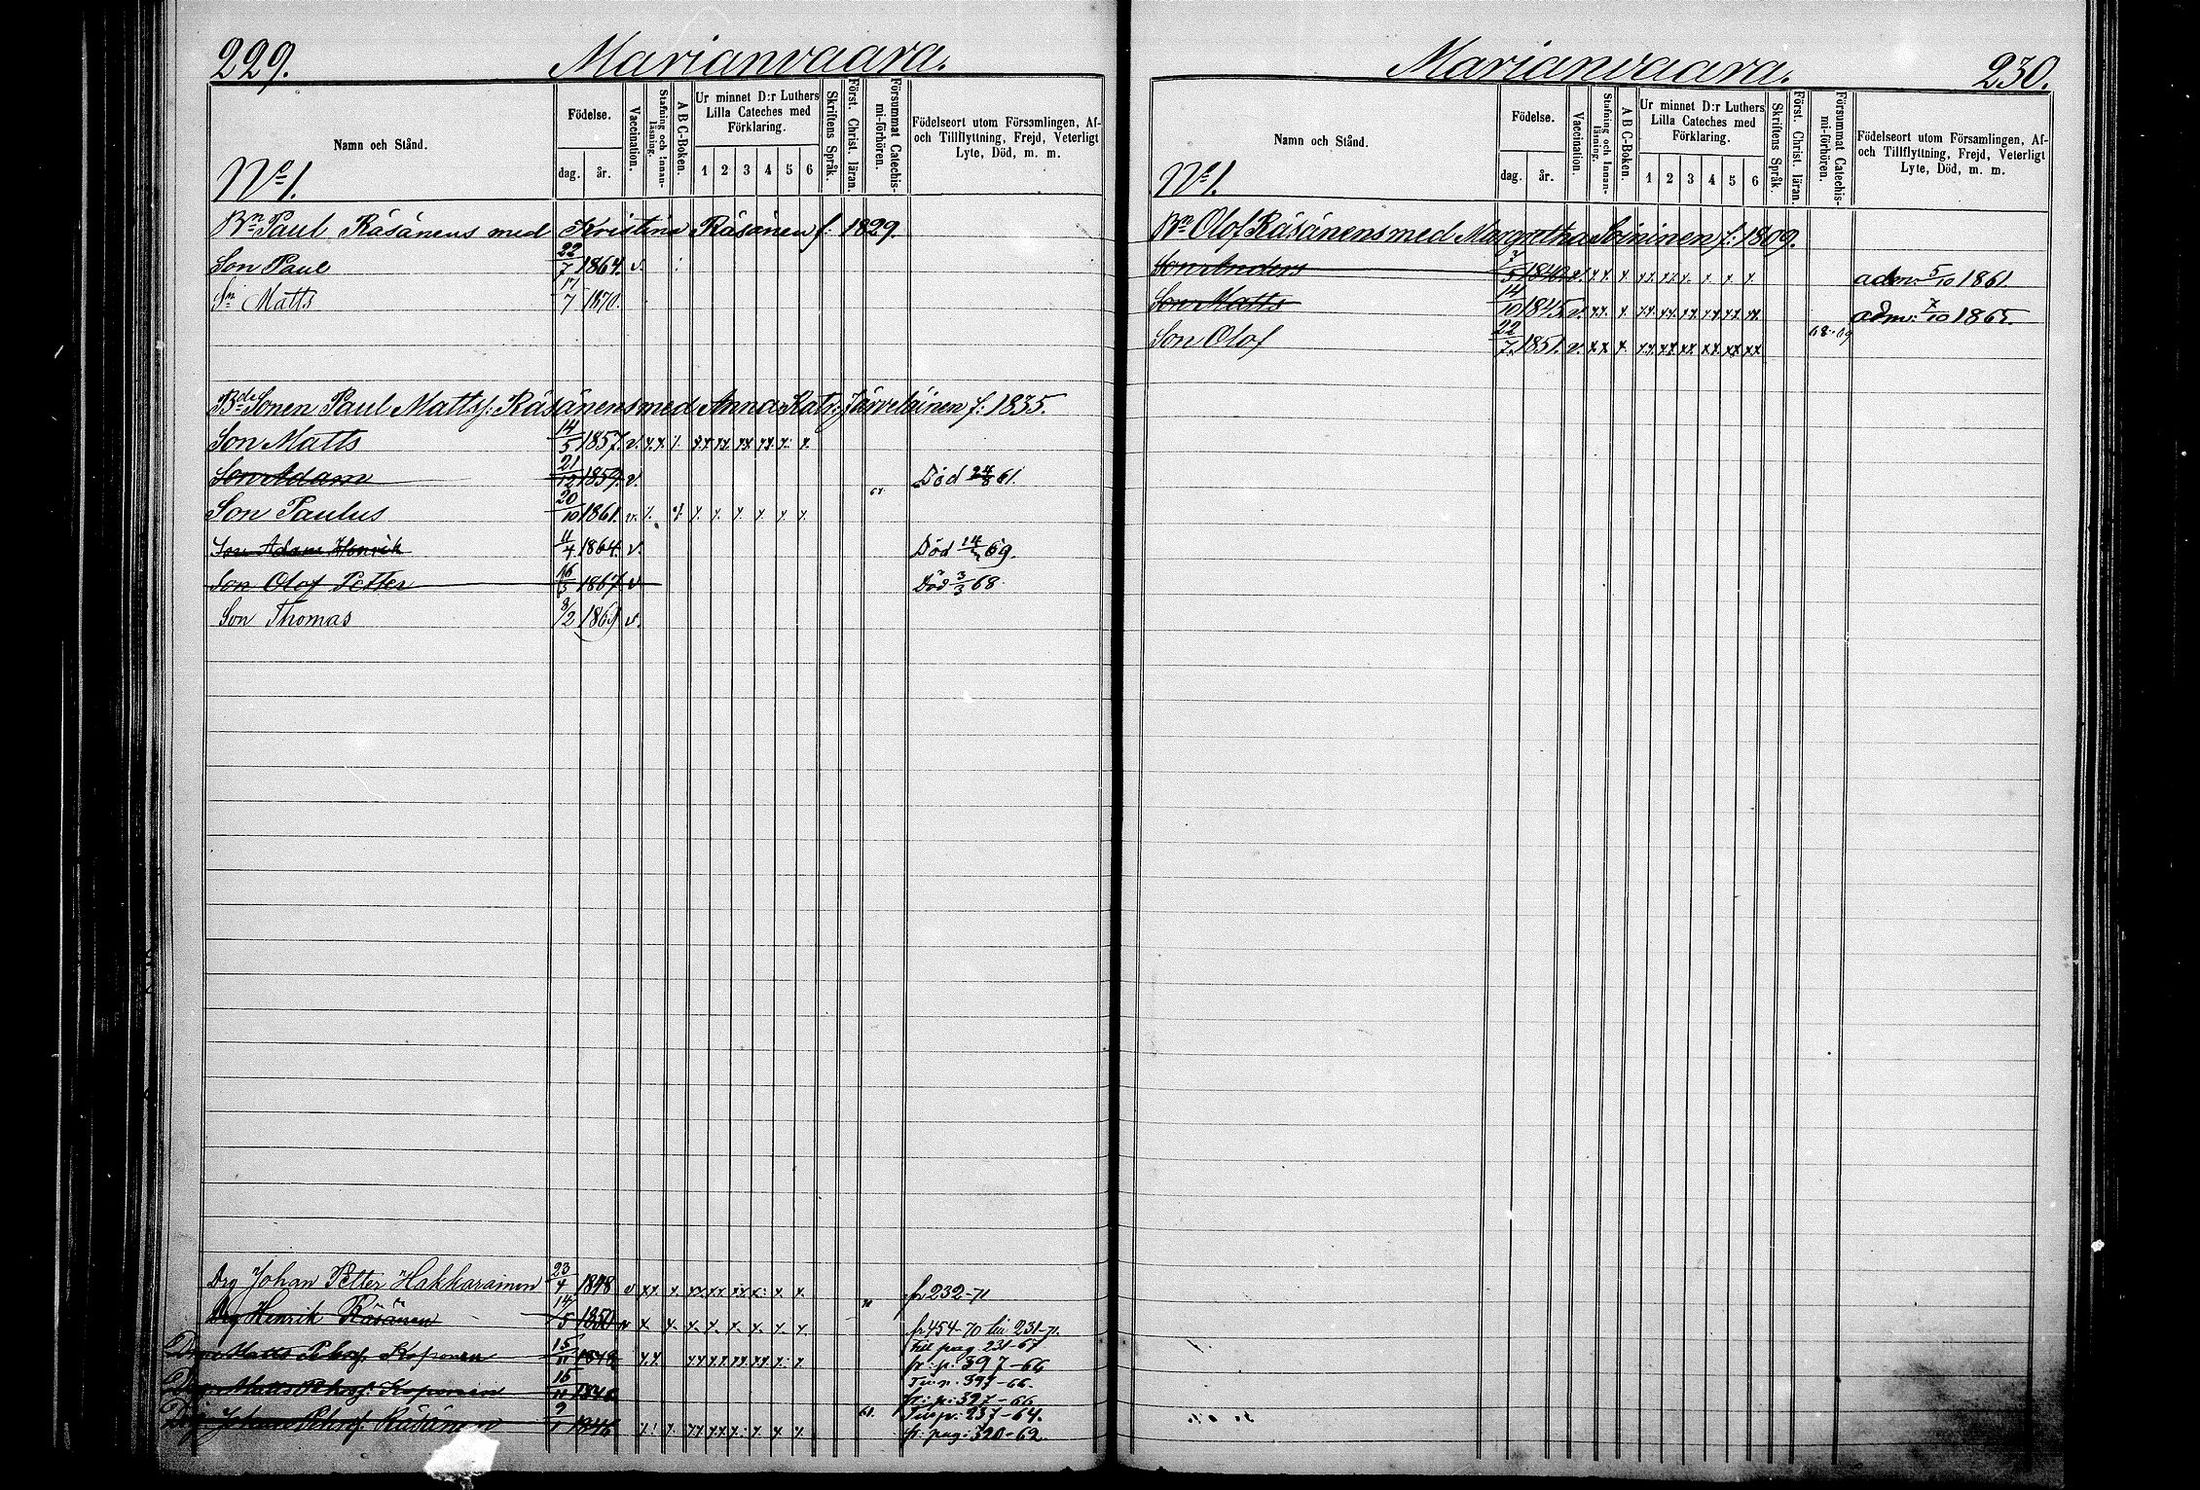 229. Marianvaara.
Namn och Stånd.
Födelse.
dag. år.
Vaccination.
Stafning och Innan-läsning.
A B C-Boken.
Ur minnet D:r Luthers Lilla Cateches med Förklaring.
1 2 3 4 5 6
Skriftens Språk.
Först. Christ. läran.
Försummat Catechis-mi-förhören.
Födelseort utom Församlingen, Af- och Tillflyttning, Frejd, Veterligt Lyte, Död, m. m.
No 1.
Bn Paul Räsänens med Kristina Räsänen f: 1829.
Son Paul 22/7 1864. v.
Sn Matts 17/7 1870.
Bde Sonen Paul Mattsf: Räsänens med Anna Katr: Järveläinen f: 1835.
Son Matts 14/5 1857. v.
Son Adam 21/12 1859. v. Död 24/8 61.
Son Paulus 20/10 1861. v.
Son Adam Henrik 11/4 1864. v. Död 69.
Son Olof Petter 1867 v Död 3/3 68.
Son Thomas 8/2 1869 v.
Drg Johan Petter Hakkarainen 23/4 1848 v fr 232-71
Drg Henrik Räsänen 14/5 1850 fr 454-70 till 231-71.
Till pag 231-67
Matts Koponen 15/11 1848 fr: p: 397-66
397-66.
Matts Koponen 15/11 fr: p: 397-66
Johan Räsänen 9/1 1846 61. Till p: 237-64.
fr: pag: 320-62.
Marianvaara. 230.
Namn och Stånd.
Födelse.
dag. år.
Vaccination.
Stafning och Innan-läsning.
A B C-Boken.
Ur minnet D:r Luthers Lilla Cateches med Förklaring.
1 2 3 4 5 6
Skriftens Språk.
Först. Christ. läran.
Försummat Catechis-mi-förhören.
Födelseort utom Församlingen, Af- och Tillflyttning, Frejd, Veterligt Lyte, Död, m. m.
No 1.
Bn Olof Räsänens med Margretha Soininen f: 1809.
Son Anders 1840. v. adm: 5/10 1861
Son Matts 14/10 1845. v. adm: 7/10 1865.
Son Olof 22/7. 1851. v. 68-69